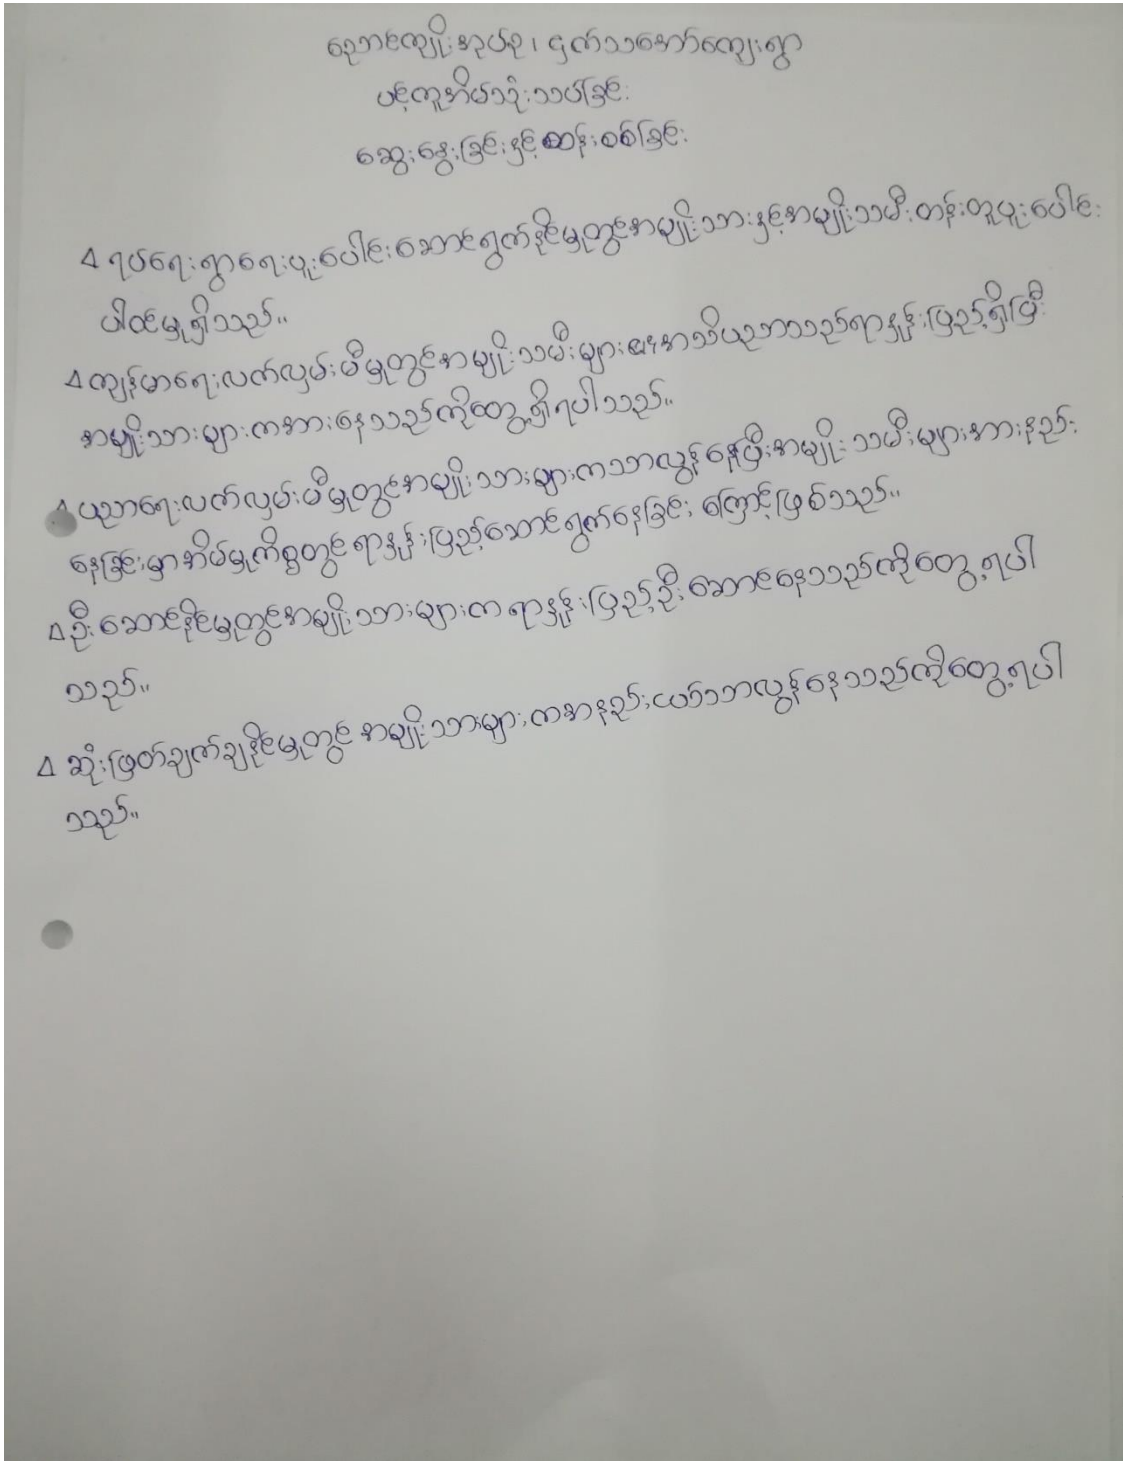 ညောင်ကျိုးအုပ်စု၊ ငှက်သအော်ကျေးရွာ
ပင့်ကူအိမ်သုံးသပ်ခြင်း
ဆွေးနွေးခြင်းနှင့်ဆန်းစစ်ခြင်း
∆ ရပ်ရေးရွာရေးပူးပေါင်းဆောင်ရွက်နိုင်မှုတွင်အမျိုးသားနှင့်အမျိုးသမီးတန်းတူပူးပေါင်း
ပါဝင်မှုရှိသည်။
∆ ကျန်မာရေးလက်လှမ်းမီမှုတွင်အမျိုးသမီးများအသိပညာသည်ရာနှုန်းပြည့်ရှိပြီး
အမျိုးသားများကအားနေသည်ကိုတွေ့ရှိရပါသည်။
∆ ပညာရေးလက်လှမ်းမီမှုတွင်အမျိုးသားများကသာလွန်နေပြီးအမျိုးသမီးများအားနည်း
နေခြင်းမှာအိမ်မှုကိစ္စတွင်ရာနှုန်းပြည့်ဆောင်ရွက်နေခြင်းကြောင့်ဖြစ်သည်။
∆ ဦးဆောင်နိုင်မှုတွင်အမျိုးသားများကရာနှုန်းပြည့်ဦးဆောင်နေသည်ကိုတွေ့ရပါ
သည်။
∆ ဆုံးဖြတ်ချက်ချနိုင်မှုတွင်အမျိုးသားများကအနည်းငယ်သာလွန်နေသည်ကိုတွေ့ရပါ
သည်။